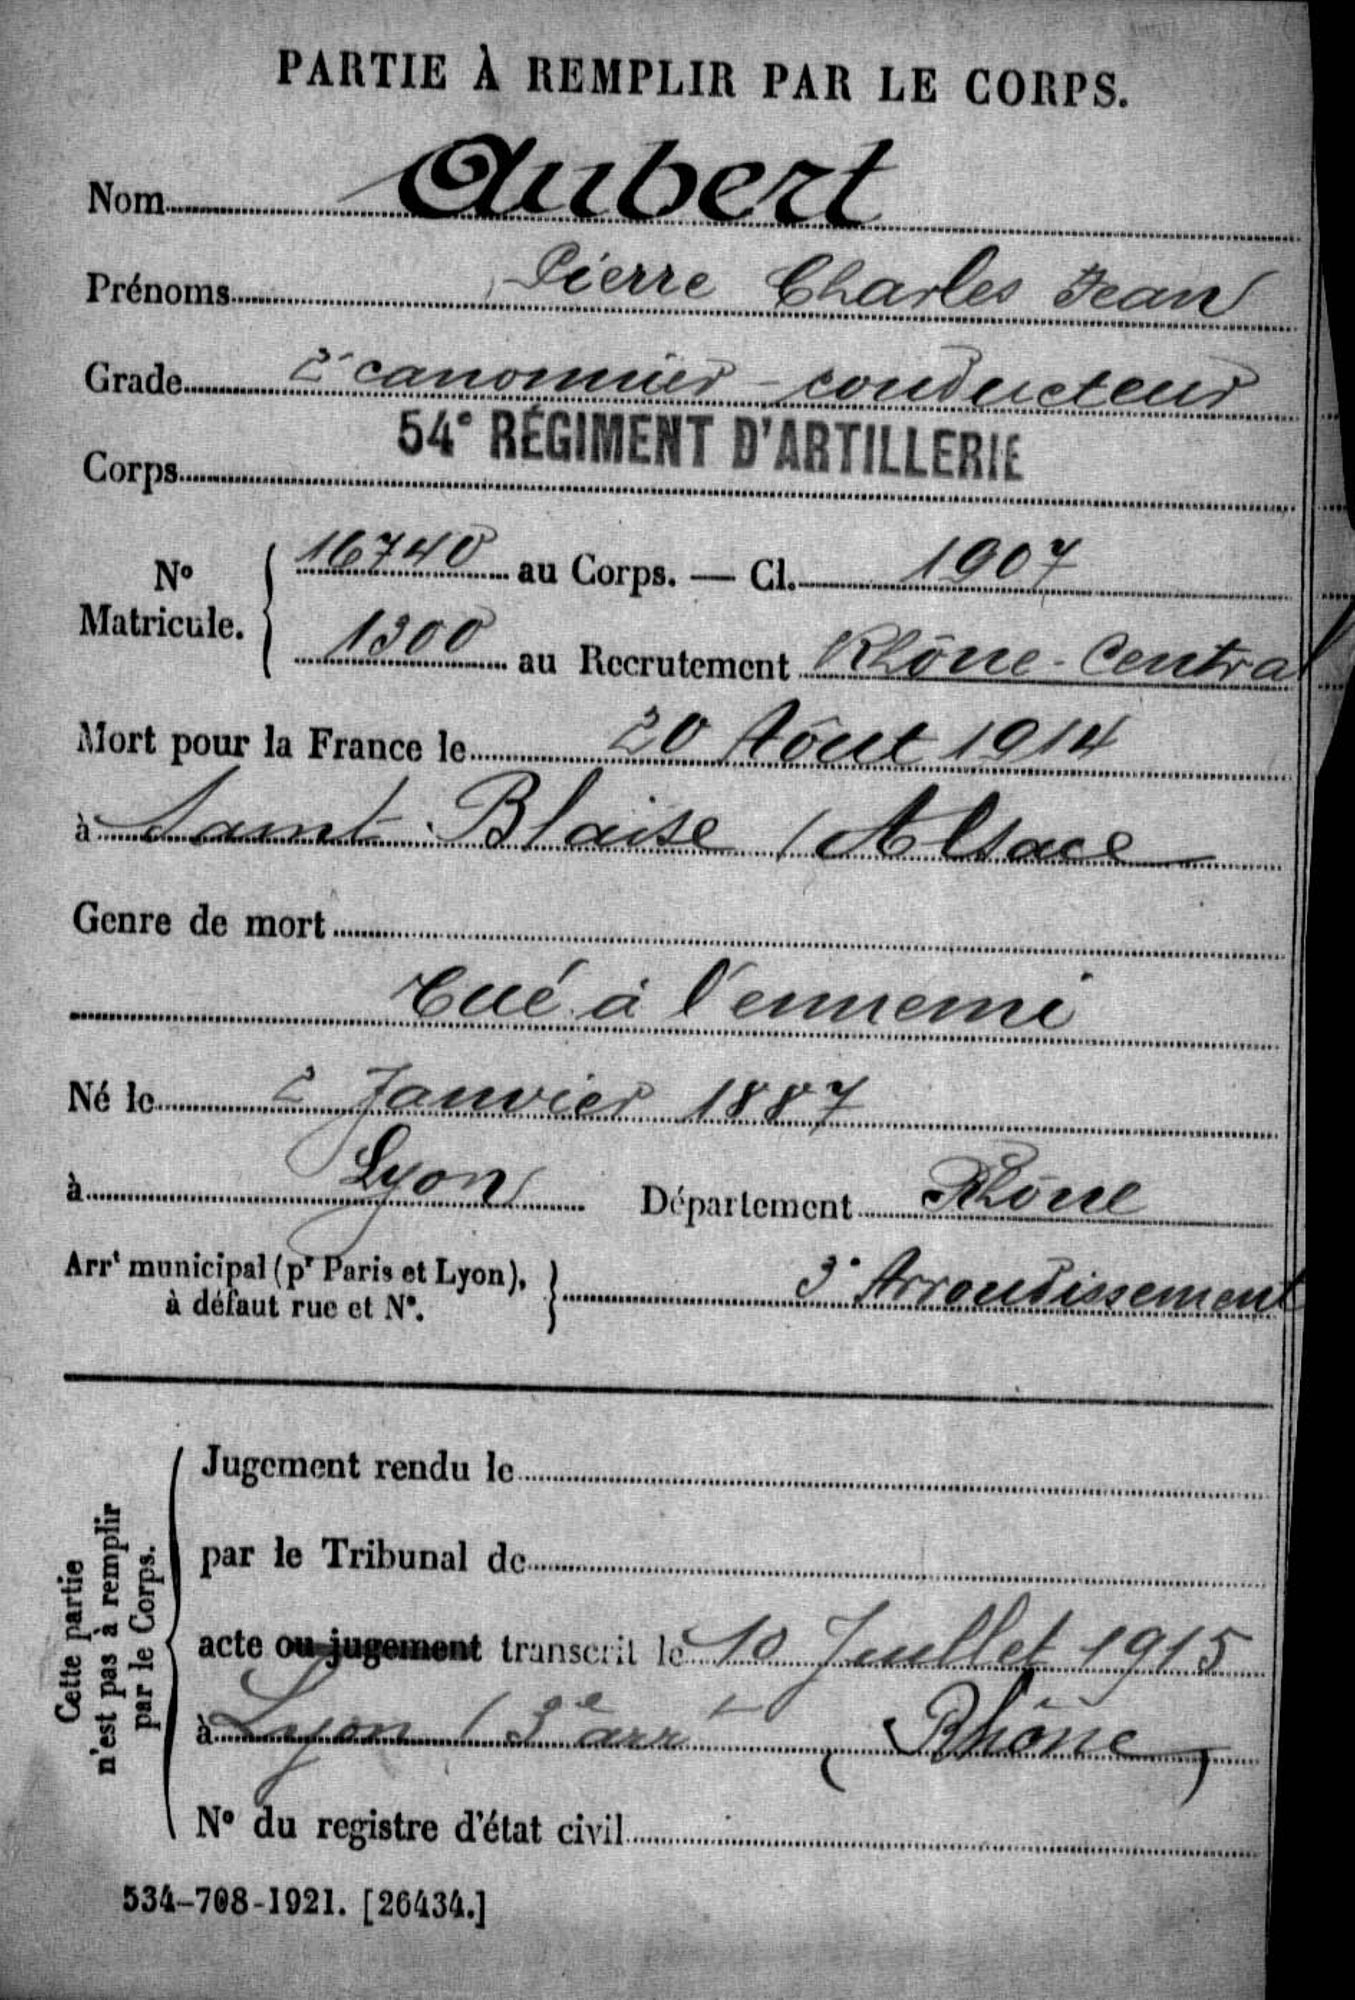 PARTIE À REMPLIR PAR LE CORPS.
Nom Aubert
Prénoms Pierre Charles Jean
Grade 2e canonnier-conducteur
54e RÉGIMENT D'ARTILLERIE
Corps
No Matricule. { 16740 au Corps. — Cl. 1907
1300 au Recrutement Rhône-Central
Mort pour la France le 20 Aôut 1914
à Saint-Blaise (Alsace
Genre de mort
Tué à l'ennemi
Né le 2 Janvier 1887
à Lyon Département Rhône
Arrt municipal (pr Paris et Lyon), à défaut rue et No. } 3e Arrondissement
Cette partie n'est pas à remplir par le Corps.
Jugement rendu le
par le Tribunal de
acte ou jugement transcrit le 10 Juillet 1915
à Lyon (3e arrt (Rhône)
No du registre d'état civil
534-708-1921. [26434.]